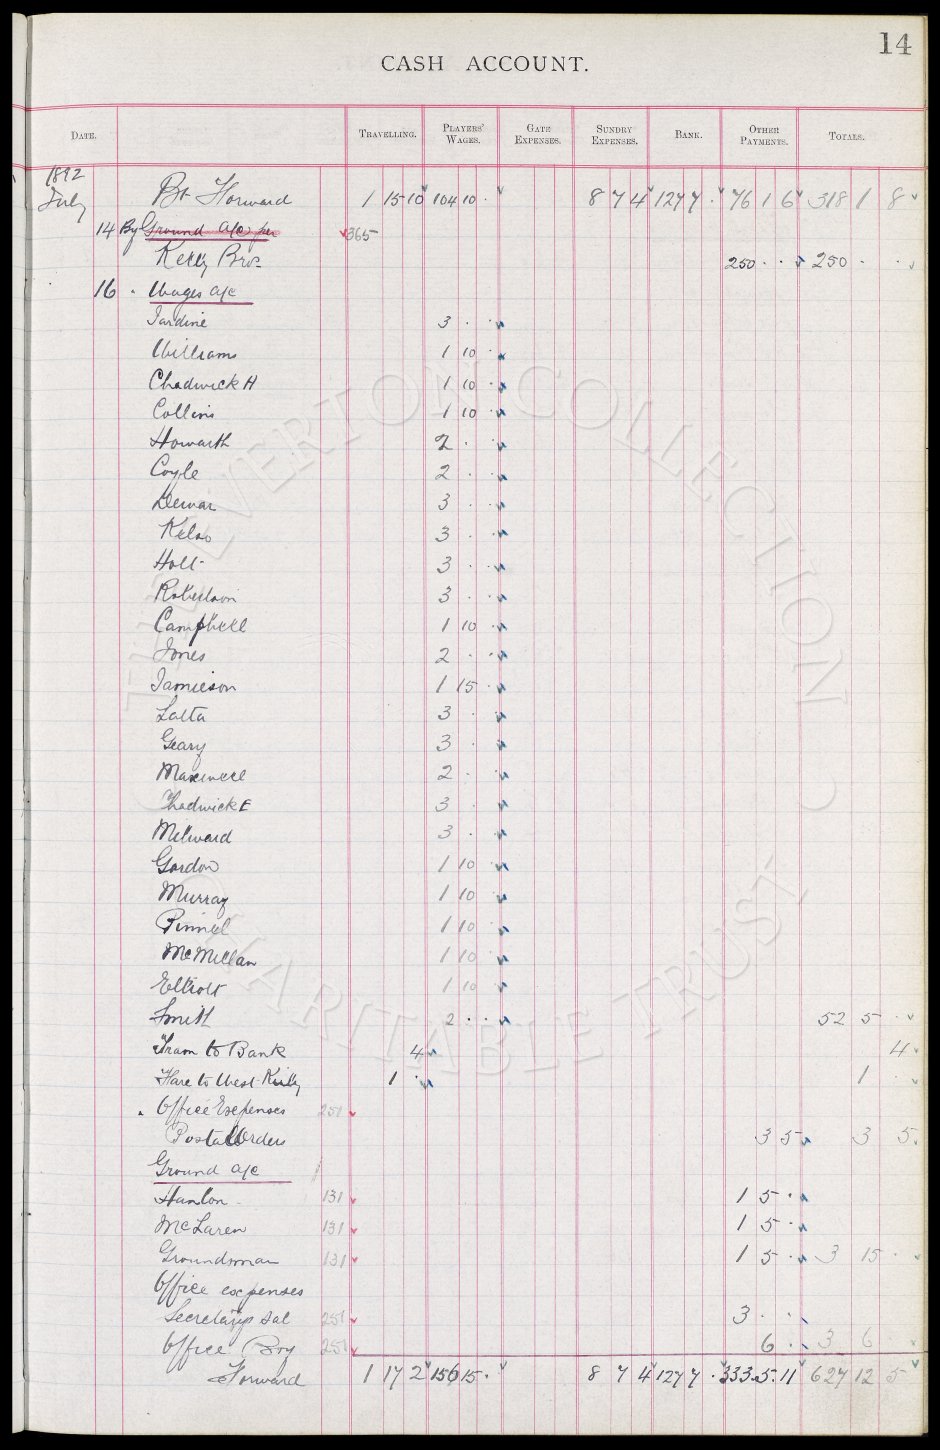 14
CASH ACCOUNT.
DATE. TRAVELLING. PLAYERS' WAGES. GATE EXPENSES. SUNDRY EXPENSES. BANK. OTHER PAYMENTS. TOTALS.
1892
July Bt Forward 1 15 10 104 10 . 8 7 4 127 7 . 76 1 6 318 1 8
14 By Ground a/c per 365
Kelly Bros 250 . . 250 . .
16 . Wages a/c
Jardine 3 . .
Williams 1 10 .
Chadwick A 1 10 .
Collins 1 10 .
Howarth 2 . .
Coyle 2 . .
Dewar 3 . .
Kelso 3 . .
Holt 3 . .
Robertson 3 . .
Campbell 1 10 .
Jones 2 . .
Jamieson 1 15 .
Latta 3 . .
Geary 3 . .
Maxwell 2 . .
Chadwick E 3 . .
Milward 3 . .
Gordon 1 10 .
Murray 1 10 .
Pinnel 1 10 .
McMillan 1 10 .
Elliott 1 10 .
Smith 2 . . 52 5 .
Tram to Bank 4 4
Fare to West Kirby 1 . 1 .
. Office Expenses 251
Postal Orders 3 5 3 5
Ground a/c
Hanlon 131 1 5 .
McLaren 131 1 5 .
Groundsman 131 1 5 . 3 15 .
Office expenses
Secretarys Sal 251 3 . .
Office Boy 251 6 . 3 6
Forward 1 17 2 156 15 . 8 7 4 127 7 . 333 . 5 . 11 627 12 5
THE EVERTON COLLECTION
CHARITABLE TRUST